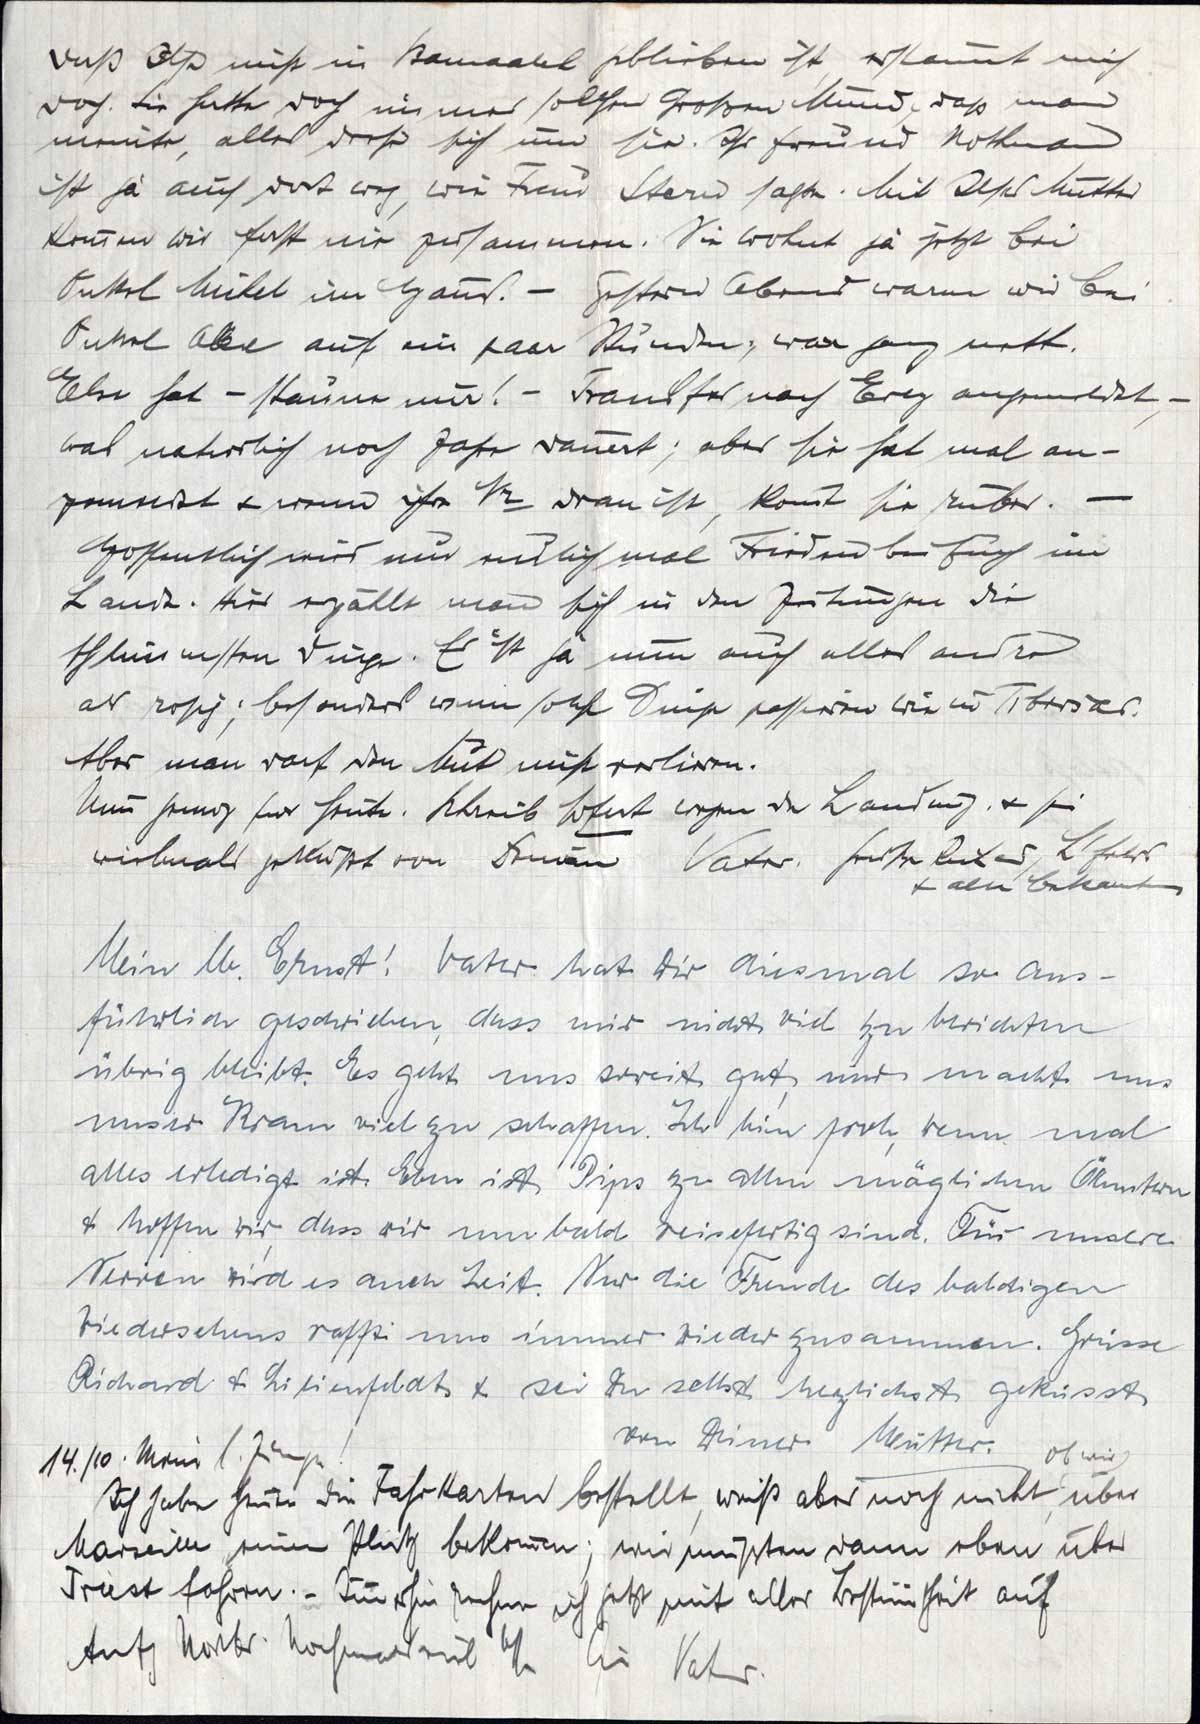 daß Ilse nicht in        geblieben ist erstaunt mich
doch. Sie hatte doch immer solchen großen Mund, daß man
meinte, alles drehe sich um sie. Ihr Freund Nothmann
ist ja auch dort weg, wie Frau Stern sagte. Mit Ilses Mutter
kommen wir fast nie zusammen. Sie wohnt ja jetzt bei
Onkel        im Haus. – Gestern Abend waren wir bei
Onkel        auf ein paar Stunden; war ganz nett.
Else hat – staune nur! – Transfer nach Erez angemeldet, –
was natürlich noch Jahre dauert; aber sie hat mal an-
gemeldet & wenn ihre Nr dran ist, komt sie rüber. —
Hoffentlich wird nun endlich mal Frieden bei Euch im
Lande. Hier erzählt man sich in den Zeitungen die
schlimmsten Dinge. Es ist ja nun auch alles andre
als rosig; besonders wenn solche Dinge passieren wie in Tiberias.
Aber man darf den Mut nicht verlieren.
Nun genug für heute. Schreib sofort wegen der Landung. & sei
vielmals geküßt von Deinem Vater. Grüße Richard,
& alle Bekannten
Mein lb. Ernst! Vater hat Dir diesmal so aus-
führlich geschrieben, dass mir nicht viel zu berichten
übrig bleibt. Es geht uns soweit gut, nur macht uns
unser Kram viel zu schaffen. Ich bin froh, wenn mal
alles erledigt ist. Eben ist Pips zu allen möglichen Ämtern
& hoffen wir, dass wir nun bald reisefertig sind. Für unsere
Nerven wird es auch Zeit. Nur die Freude des baldigen
Wiedersehens rafft uns immer wieder zusammen. Grüsse
Richard & Lilienfeldts & sei Du selbst herzlichst geküsst
von Deiner Mutter.
14./10. Mein l. Junge!
Ich habe heute die Fahrkarten bestellt, weiß aber noch nicht, ob wir über
Marseille einen Platz bekommen; wir müßten dann eben über
Triest fahren. – Immerhin rechne ich jetzt mit aller Bestimtheit auf
Anfg Novbr. Nochmals viel        Vater.